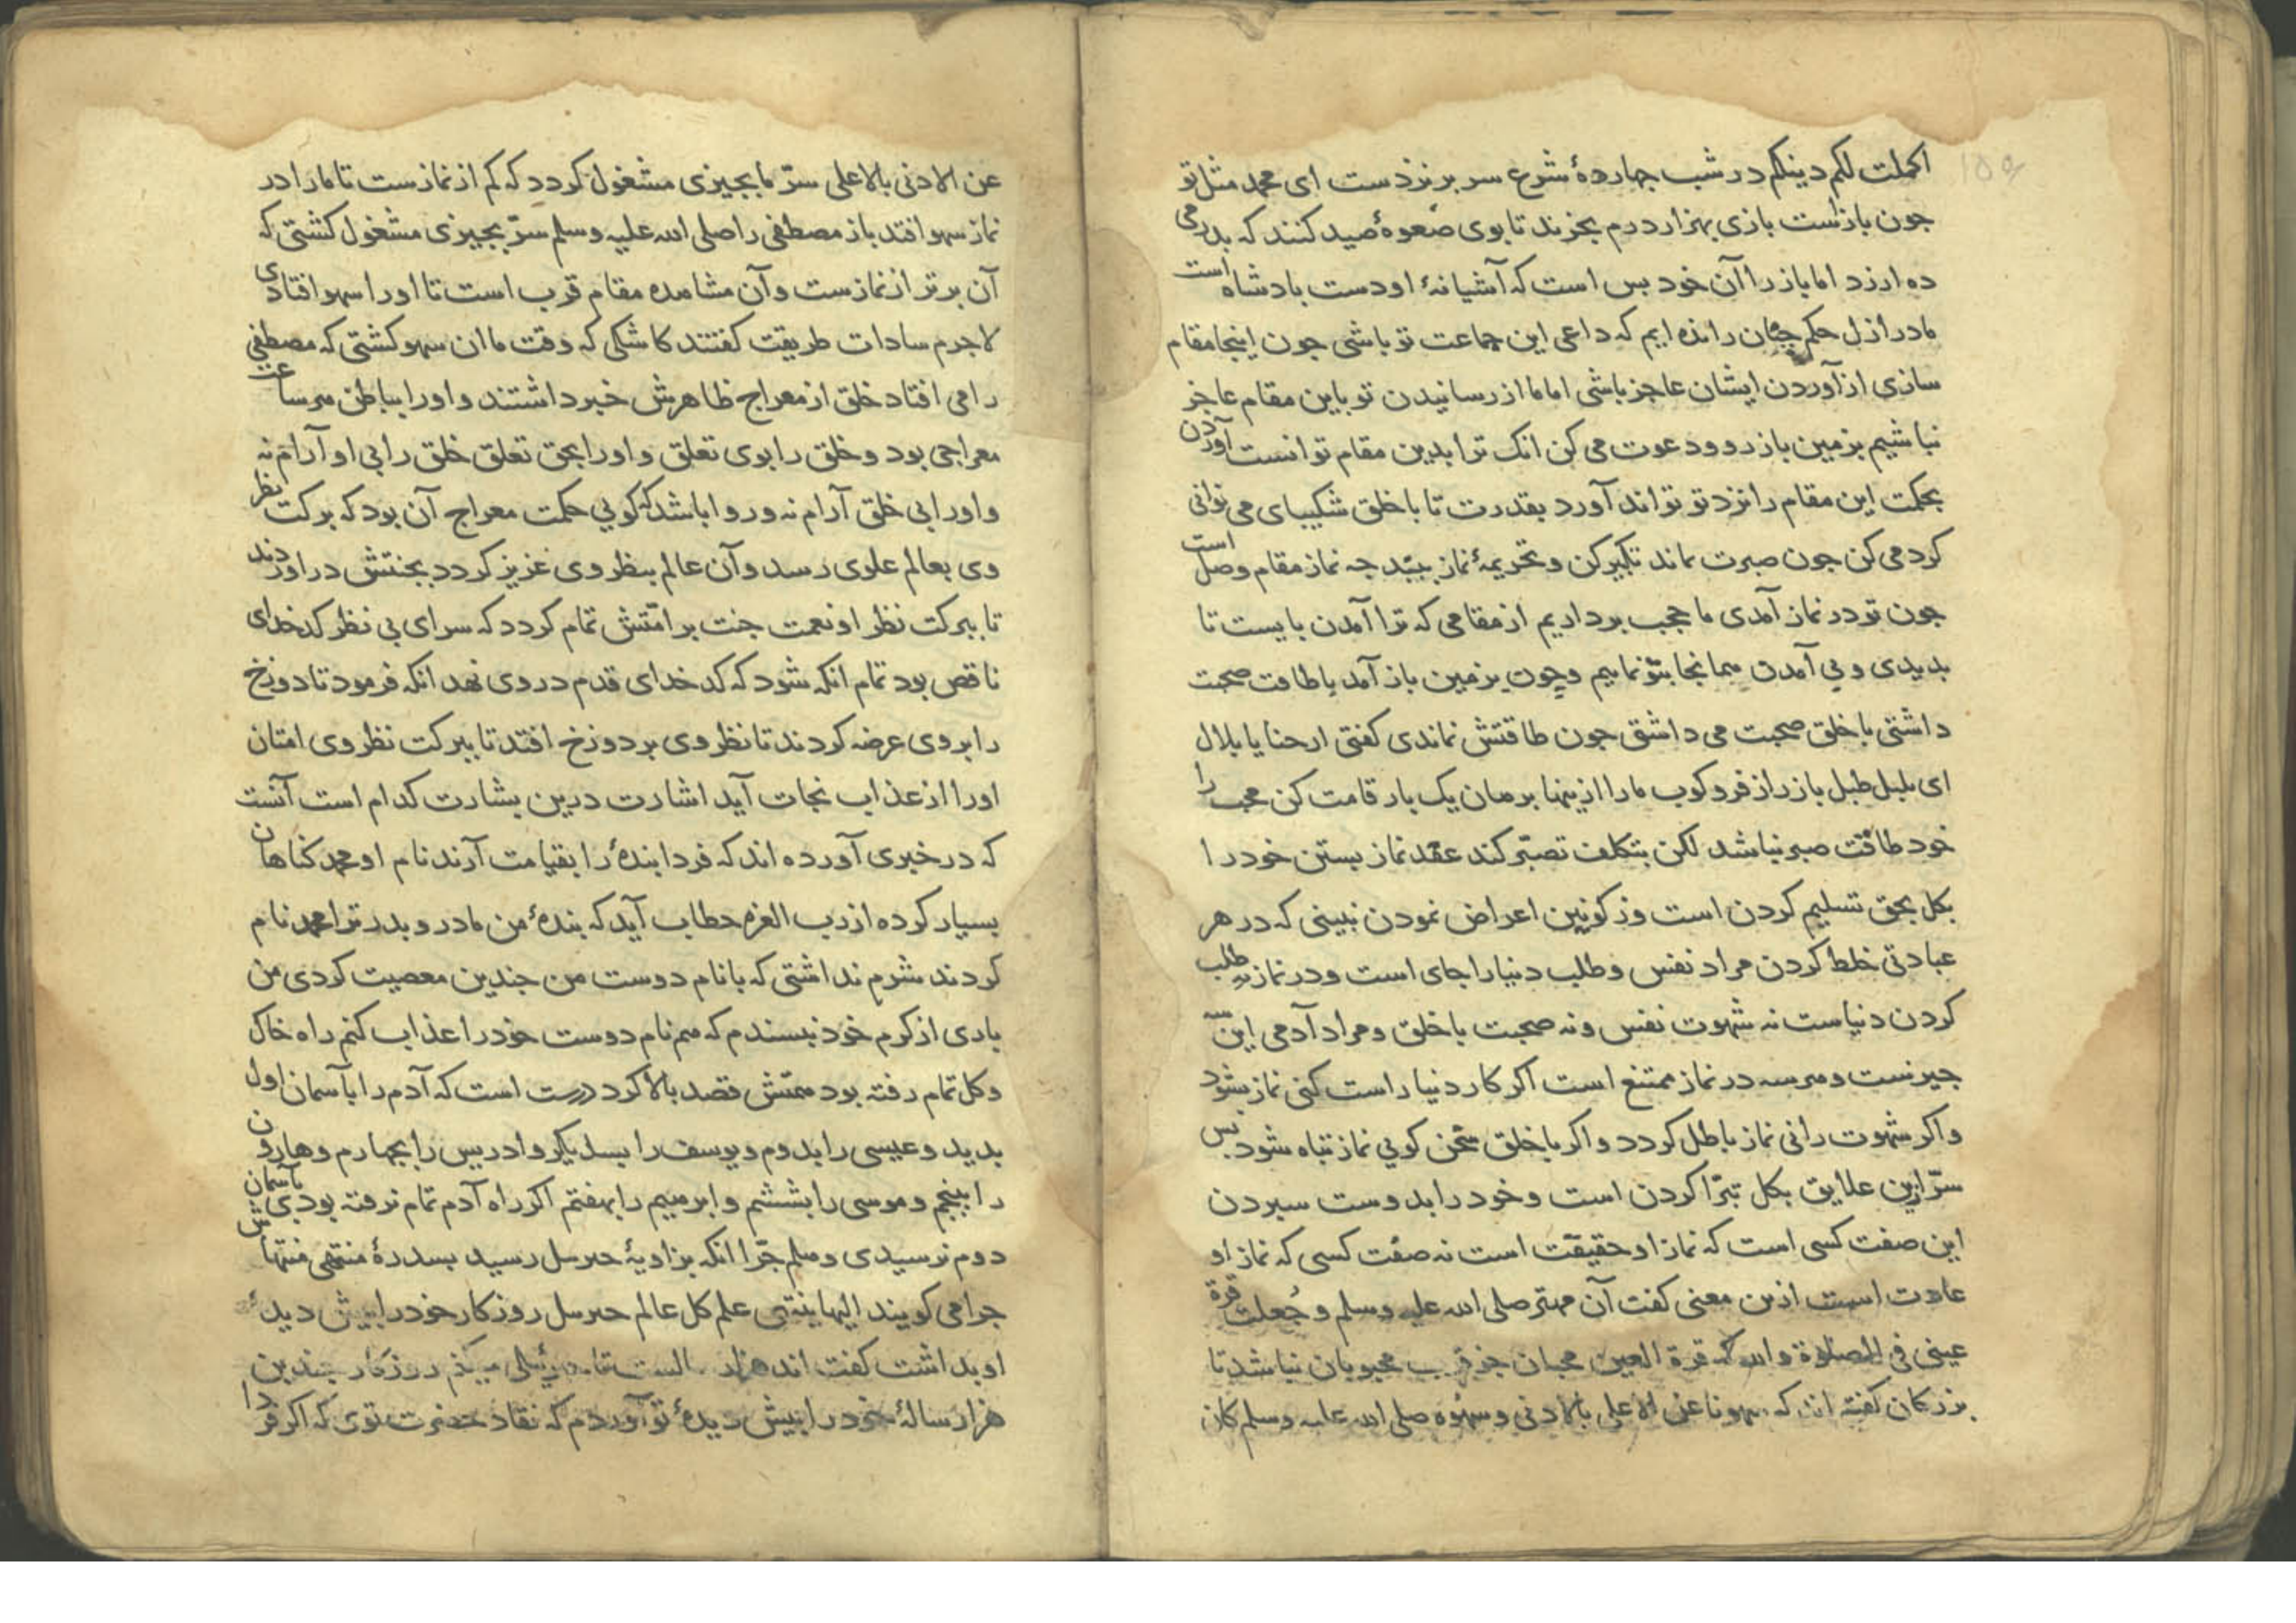 اکملت لکم دینکم در شب چهاردهٔ شرع سر بر نزدست ای محمد مثل تو
جون بازست بازی بهزار درم بخزند تا بوی صعوهٔ صید کنند که بدرمی
ده ارزد اما باز را آن خود بس است که آشیانهٔ او دست بادشاه است
مادر ازل حکم چنان رانده ایم که داعی این جماعت تو باشی جون اینجا مقام
سازی از آوردن ایشان عاجز باشی اما ما از رسانیدن تو باین مقام عاجز
نباشیم بزمین باز رو و دعوت می کن انک ترا بدین مقام توانست آوردن
بحکمت این مقام را نزد تو تواند آورد بقدرت تا با خلق شکیبای می توانی
کرد می کن جون صبرت نماند تکبیر کن و تحریمهٔ نماز ببند جه نماز مقام وصل است
جون تو در نماز آمدی ما حجب برداریم از مقامی که ترا آمدن بایست تا
بدیدی و بی آمدن همانجا بتو نماییم و چون بزمین باز آمد با طاقت صحبت
داشتی با خلق صحبت می داشتی جون طاقتش نماندی کفتی ارحنا یا بلال
ای بلبل طبل باز راز فروکوب ما را ازینها برهان یک بار قامت کن محب را
خود طاقت صبر نباشد لکن بتکلف تصبّر کند عقد نماز بستن خود را
بکل بحق تسلیم کردن است وز کونین اعراض نمودن نبینی که در هر
عبادتی خلط کردن مراد نفس و طلب دنیا را جای است و در نماز نه طلب
کردن دنیاست نه شهوت نفس و نه صحبت با خلق و مراد آدمی این سه
جیزست و هر سه در نماز ممتنع است اکر کار دنیا راست کنی نماز بشود
و اکر شهوت رانی نماز باطل کردد و اکر با خلق سخن کویی نماز تباه شود بس
سرّ ازین علایق بکل تبرّا کردن است و خود را بدوست سبردن
این صفت کسی است که نماز او حقیقت است نه صفت کسی که نماز او
عادت است ازین معنی کفت آن مهتر صلی الله علیه وسلم و جُعلت قرة
عینی فی الصلوة و الله که قرة العین محبان جز قرب محبوبان نباشد تا
بزرکان کفته اند که سهونا عن الاعلی بالادنی و سهوه صلی الله علیه وسلم کان
عن الادنی بالاعلی سرّ ما بجیزی مشغول کردد که کم از نمازست تا ما را در
نماز سهو افتد باز مصطفی را صلی الله علیه وسلم سرّ بجیزی مشغول کشتی که
آن برتر از نمازست و آن مشاهده مقام قرب است تا او را سهو افتادی
لاجرم سادات طریقت کفتند کاشکی که وقت ما ان سهو کشتی که مصطفی
را می افتاد خلق از معراج ظاهرش خبر داشتند و او را بباطن هر ساعت
معراجی بود و خلق را بوی تعلق و او را بحق تعلق خلق را بی او آرام نه
و او را بی خلق آرام نه و روا باشد که کویی حکمت معراج آن بود که برکت نظر
وی بعالم علوی رسد و آن عالم بنظر وی عزیز کردد بجنتش در اوردند
تا ببرکت نظر او نعمت جنت بر امّتش تمام کردد که سرای بی نظر کدخدای
ناقص بود تمام انکه شود که کدخدای قدم در وی نهد انکه فرمود تا دوزخ
را بر وی عرضه کردند تا نظر وی بر دوزخ افتد تا ببرکت نظر وی امتان
او را از عذاب نجات آید اشارت درین بشارت کدام است آنست
که در خبری آورده اند که فردا بندهٔ را بقیامت آرند نام او محمد کناهان
بسیار کرده از رب العزه خطاب آید که بندهٔ من مادر و بدر ترا محمد نام
کردند شرم نداشتی که با نام دوست من جندین معصیت کردی من
باری از کرم خود نبسندم که هم نام دوست خود را عذاب کنم راه خاک
و کل تمام رفته بود همتش قصد بالا کرد درست است که آدم را بآسمان اول
بدید و عیسی را بدوم و یوسف را بسدیکر و ادریس را بجهارم و هارون
را ببنجم و موسی را بششم و ابرهیم را بهفتم اکر راه آدم تمام نرفته بودی بآسمان
دوم نرسیدی و هلم جرّا انکه بزاویهٔ جبرئیل رسید بسدرهٔ منتهی منتهاش
جرا می کویند الیها ینتهی علم کل عالم جبرئیل روزکار خود را بیش دیدهٔ
او بداشت کفت اند هزار سالست تا می کنم روزکار جندین
هزار سالهٔ خود را بیش دیدهٔ تو آوردم که نقاد حضرت توی که اکر فردا